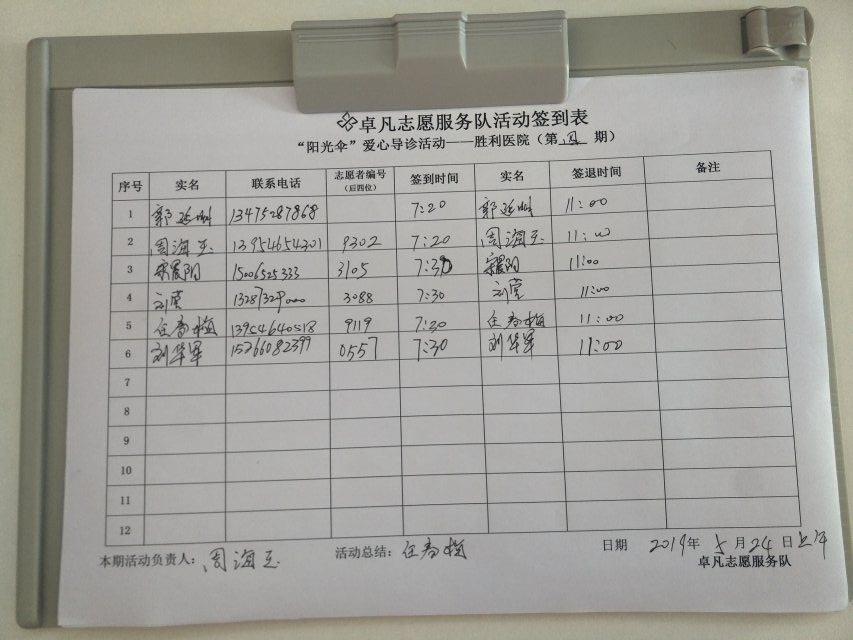 卓凡志愿服务队活动签到表
“阳光伞”爱心导诊活动——胜利医院（第 期）
序号 实名 联系电话 志愿者编号（后四位） 签到时间 实名 签退时间 备注
1 郭延 13475287868 7:20 郭延 11:00
2 周海玉 13954654301 9302 7:20 周海玉 11:00
3 宋晨阳 15006525333 3105 7:30 宋晨阳 11:00
4 刘莹 3088 7:30 刘莹 11:00
5 任春梅 13954640518 9119 7:20 任春梅 11:00
6 刘华军 15266082399 0557 7:30 刘华军 11:00
7
8
9
10
11
12
本期活动负责人：周海玉 活动总结：任春梅 日期 2019年5月24日上午
卓凡志愿服务队